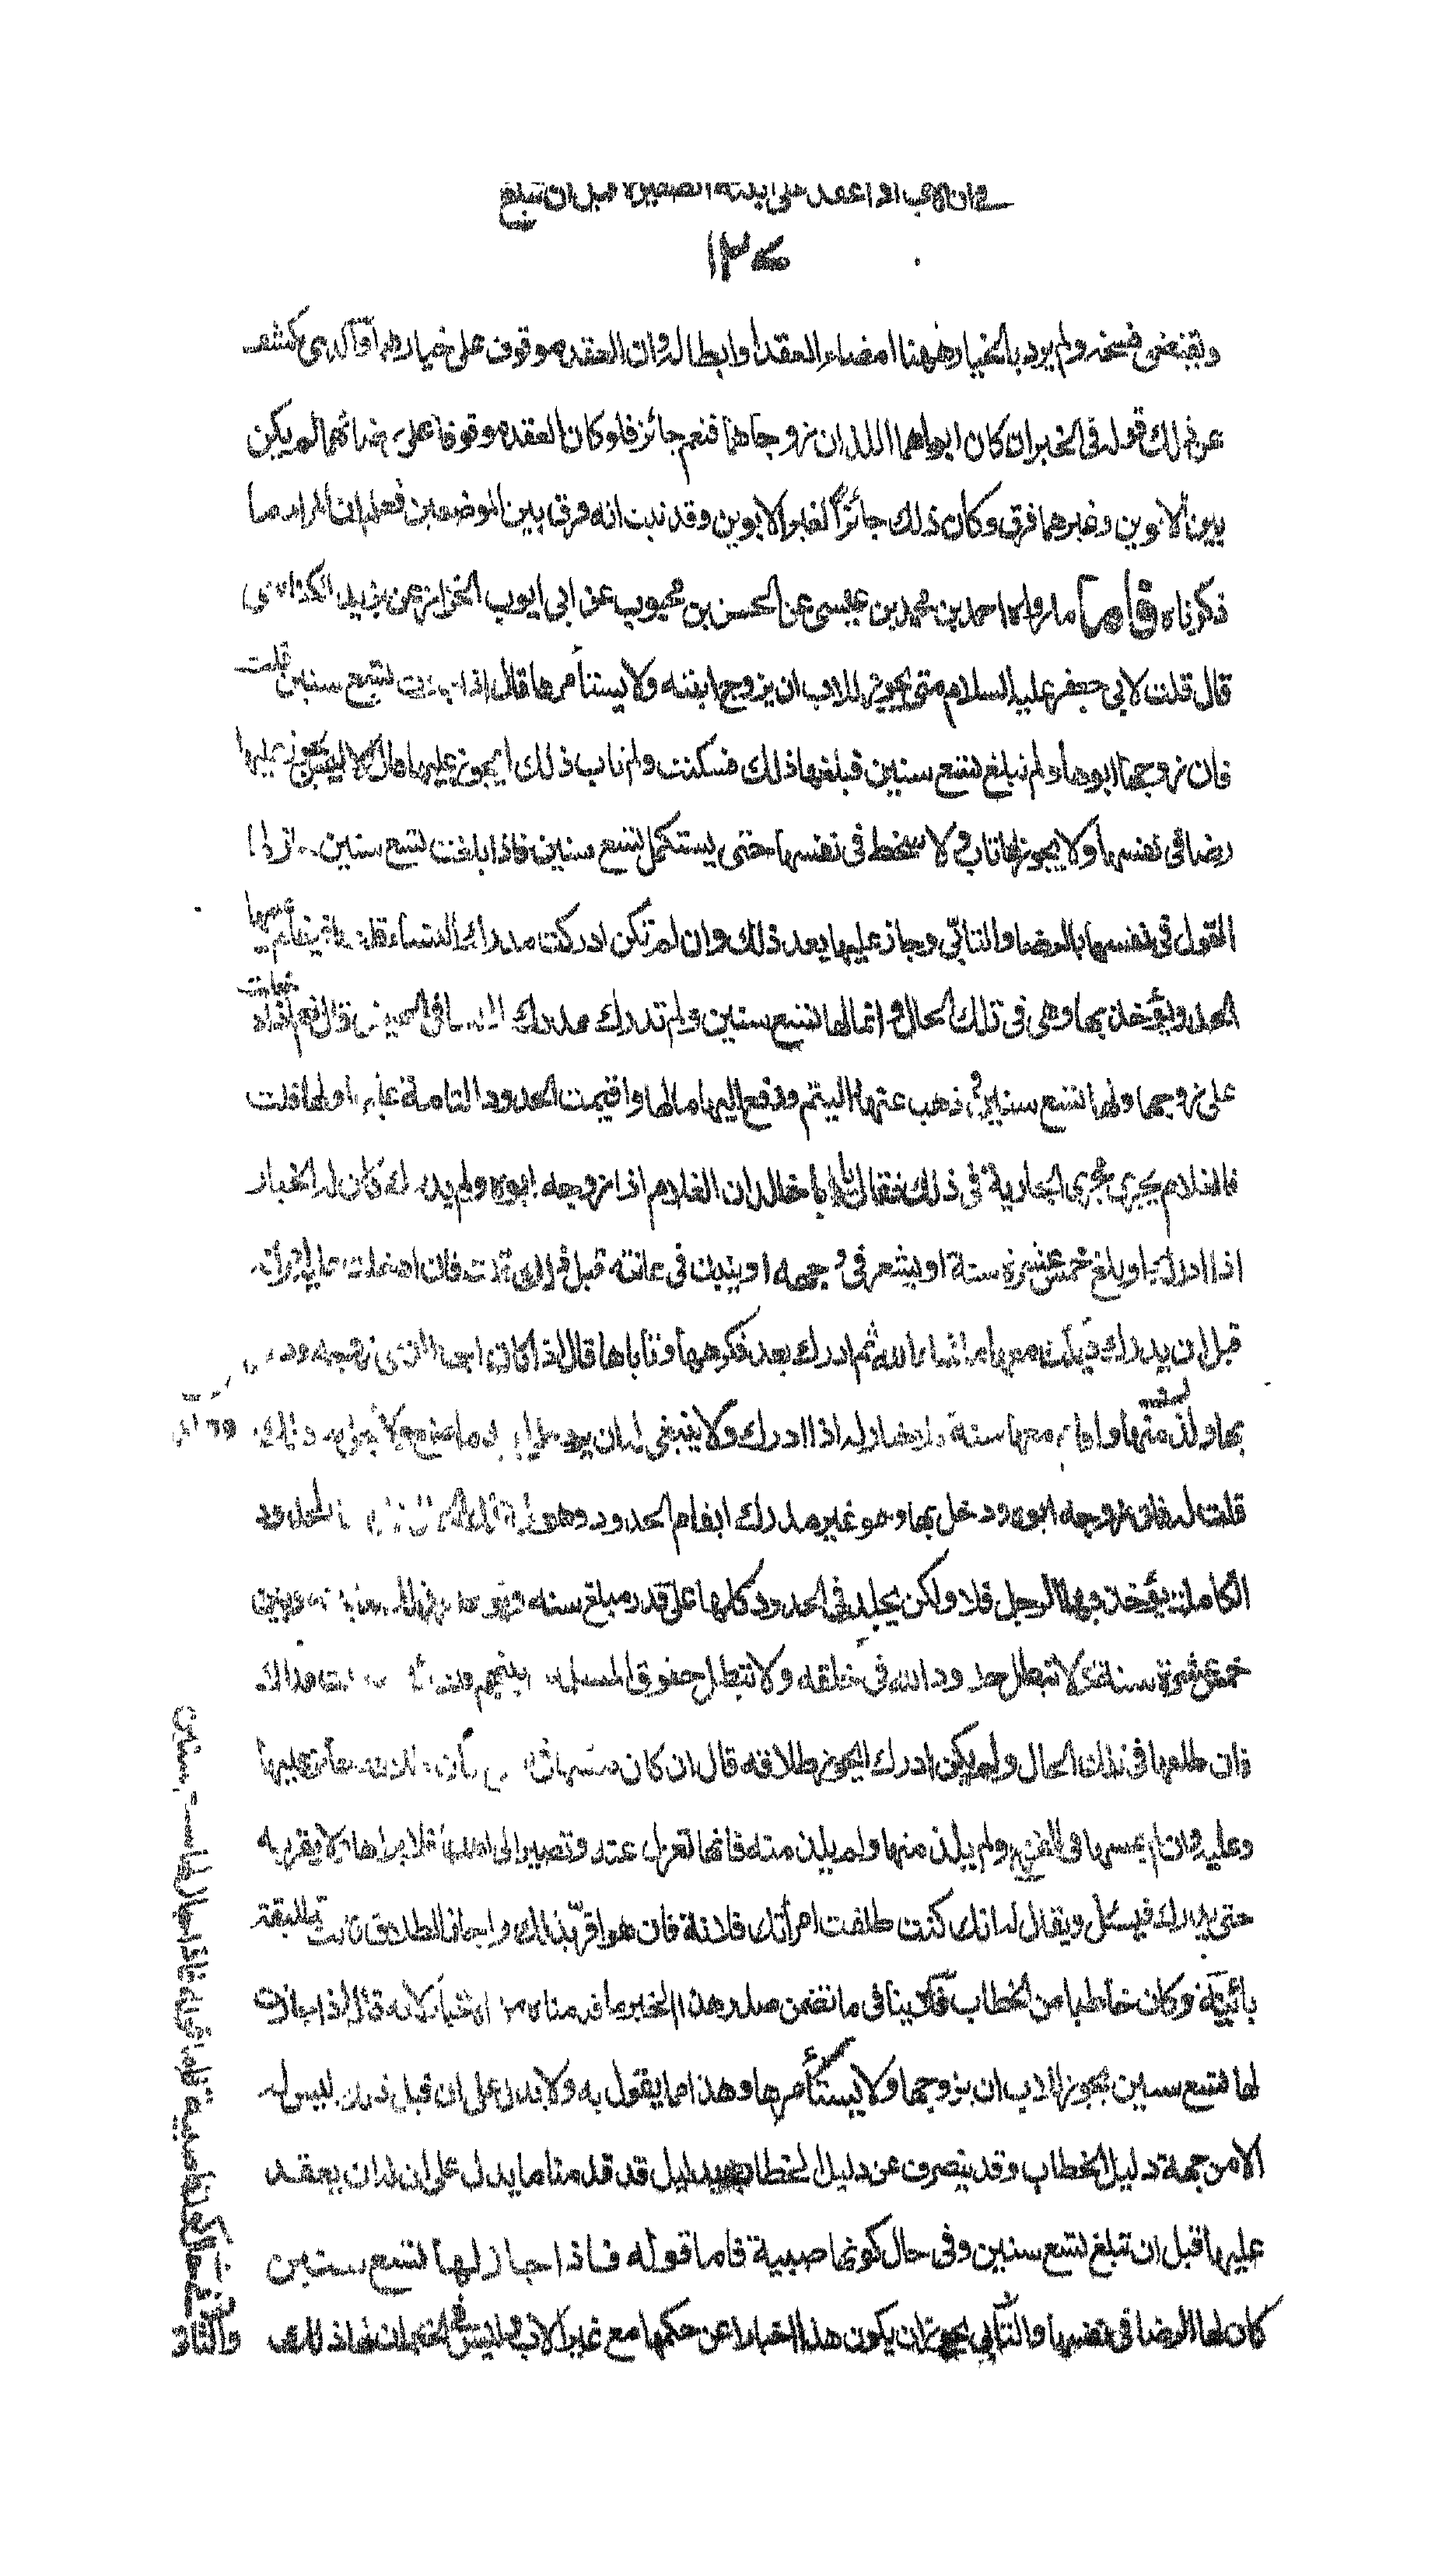 في ان الاب اذا عقد على ابنته الصغيرة قبل ان تبلغ
١٢٧
ويقتضى فسخه ولم يرد بالخيار ههنا امضاء العقد او ابطاله وان العقد موقوف على خيارهما والذى يكشف
عن ذلك قوله فى الخبر ان كان ابواهما اللذان زوجاهما فنعم جائز فلو كان العقد موقوفا على رضائهما لم يكن
بين الابوين وغيرهما فرق وكان ذلك جائزاً لغير الابوين وقد ثبت انه فرق بين الموضعين فعلم ان المراد ما
ذكرناه فاما ما رواه احمد بن محمد بن عيسى عن الحسن بن محبوب عن ابى ايوب الخزاز عن يزيد الكناسى
قال قلت لابى جعفر عليه السلام متى يجوز للاب ان يزوج ابنته ولا يستأمرها قال اذا جازت تسع سنين قلت
فان زوجها ابوها ولم تبلغ تسع سنين فبلغها ذلك فسكتت ولم تاب ذلك ايجوز عليها قال لا ليس يجوز عليها
رضا فى نفسها ولا يجوز لها تاب ولا سخط فى نفسها حتى يستكمل تسع سنين فاذا بلغت تسع سنين جاز لها
القول فى نفسها بالرضا والتابى وجاز عليها بعد ذلك وان لم تكن ادركت مدرك النساء قلت افيقام عليها
الحد ويؤخذ بها وهى فى تلك الحال وانما لها تسع سنين ولم تدرك مدرك النساء فى الحيض قال نعم اذا دخلت
على زوجها ولها تسع سنين ذهب عنها اليتم ودفع اليها مالها واقيمت الحدود التامة عليها ولها قلت
فالغلام يجرى مجرى الجارية فى ذلك فقال يا ابا خالد ان الغلام اذا زوجه ابوه ولم يدرك كان له الخيار
اذا ادرك او بلغ خمس عشرة سنة او يشعر فى وجهه او ينبت فى عانته قبل ذلك قلت فان ادخلت عليه امرأته
قبل ان يدرك فمكث معها ما شاء الله ثم ادرك بعد فكرهها وتاباها قال اذا كان ابوه الذى زوجه ودخل
بها ولذ منها واقام معها سنة فلا خيار له اذا ادرك ولا ينبغى له ان يرد على ابيه ما صنع ولا يحل له ذلك
قلت له فان زوجه ابوه ودخل بها وهو غير مدرك ايقام الحدود وهو فى تلك الحال قال اما الحدود
الكاملة يؤخذ بها الرجل فلا ولكن يجلد فى الحدود كلها على قدر مبلغ سنه فيؤخذ بذلك ما بينه وبين
خمس عشرة سنة فلا تبطل حدود الله فى خلقه ولا تبطل حقوق المسلمين بينهم قلت له جعلت فداك
فان طلقها فى تلك الحال ولم يكن ادرك ايجوز طلاقه قال ان كان مسها فى الفرج فان طلاقه جائز عليها
وعليه وان لم يمسها فى الفرج ولم يلذ منها ولم يلذ منه فانها تعزل عنه وتصير الى اهلها فلا يراها ولا يقربه
حتى يدرك فيسئل ويقال له انك كنت طلقت امرأتك فلانة فان هو اقر بذلك واجاز الطلاق كانت تطليقة
بائنة وكان خاطبا من الخطاب فلا ينافى ما تضمن صدر هذا الخبر ما قدمناه من الاخبار لانه قال اذا جاز
لها تسع سنين يجوز للاب ان يزوجها ولا يستأمرها وهذا مما يقول به ولا يدل على ان قبل ذلك ليس له
الا من جهة دليل الخطاب وقد ينصرف عن دليل الخطاب بدليل قد قدمنا ما يدل على ان له ان يعقد
عليها قبل ان تبلغ تسع سنين وفى حال كونها صبية فاما قوله فاذا جاز لها تسع سنين
كان لها الرضا فى نفسها والتابى يجوز ان يكون هذا اخبارا عن حكمها مع غير الاب وليس فى الخبر ان لها ذلك